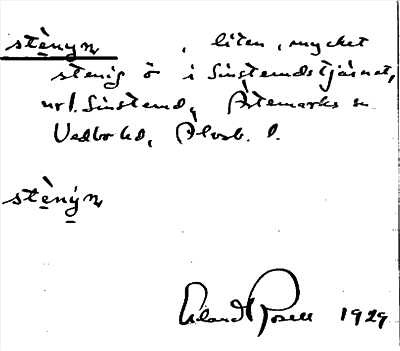 stènyn, liten, mycket
stenig ö i Sinstemdstjärnet,
vid Sinstemd, Årtemarks sn
Vedbo hd, Älvsb. l.
stènýn
Erland Rosell 1929